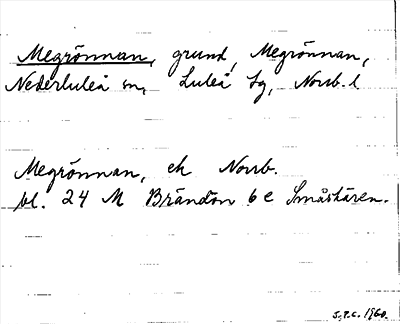 Megrönnan, grund, Megrönnan,
Nederluleå sn, Luleå tg, Norrb. l
Megrönnan, ek Norrb.
bl. 24 M Brändön 6 e Småskären.
S.P.C. 1960.